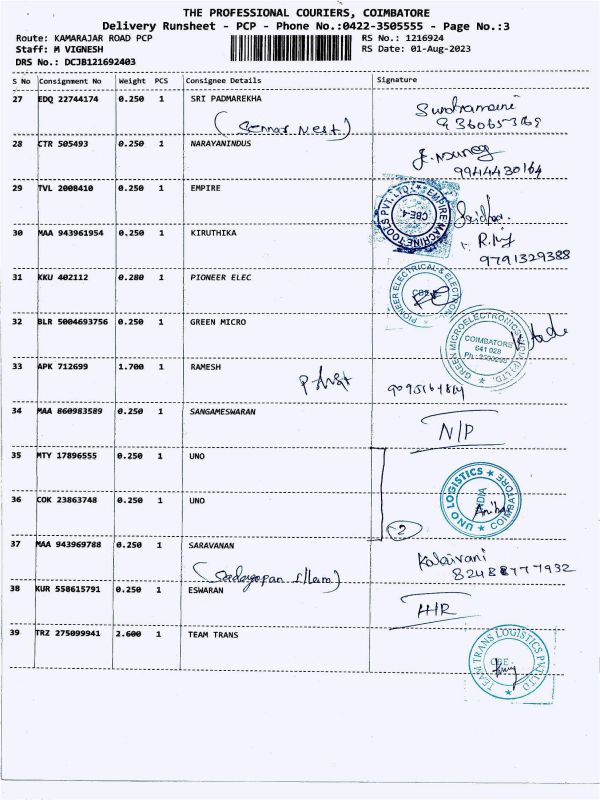 THE PROFESSIONAL COURIERS, COIMBATORE
Delivery Runsheet - PCP - Phone No.:0422-3505555 - Page No.:3
Route: KAMARAJAR ROAD PCP RS No.: 1216924
Staff: M VIGNESH RS Date: 01-Aug-2023
DRS No.: DCJB121692403
S No Consignment No Weight PCS Consignee Details Signature
27 EDQ 22744174 0.250 1 SRI PADMAREKHA
28 CTR 505493 0.250 1 NARAYANINDUS
9944430164
29 TVL 2008410 0.250 1 EMPIRE
EMPIRE MACHINE TOOLS PVT. LTD. CBE-4
30 MAA 943961954 0.250 1 KIRUTHIKA
9791329388
31 KKU 402112 0.280 1 PIONEER ELEC
PIONEER ELECTRICAL & ELECTRON
32 BLR 5004693756 0.250 1 GREEN MICRO
COIMBATORE
641 028
33 APK 712699 1.700 1 RAMESH
34 MAA 860983589 0.250 1 SANGAMESWARAN
N/P
35 MTY 17896555 0.250 1 UNO
UNO LOGISTICS COIMBATORE INDIA
36 COK 23863748 0.250 1 UNO
2
37 MAA 943969788 0.250 1 SARAVANAN
Kalaivani
82488777932
38 KUR 558615791 0.250 1 ESWARAN
39 TRZ 275099941 2.600 1 TEAM TRANS
TEAM TRANS LOGISTICS PVT LTD CBE